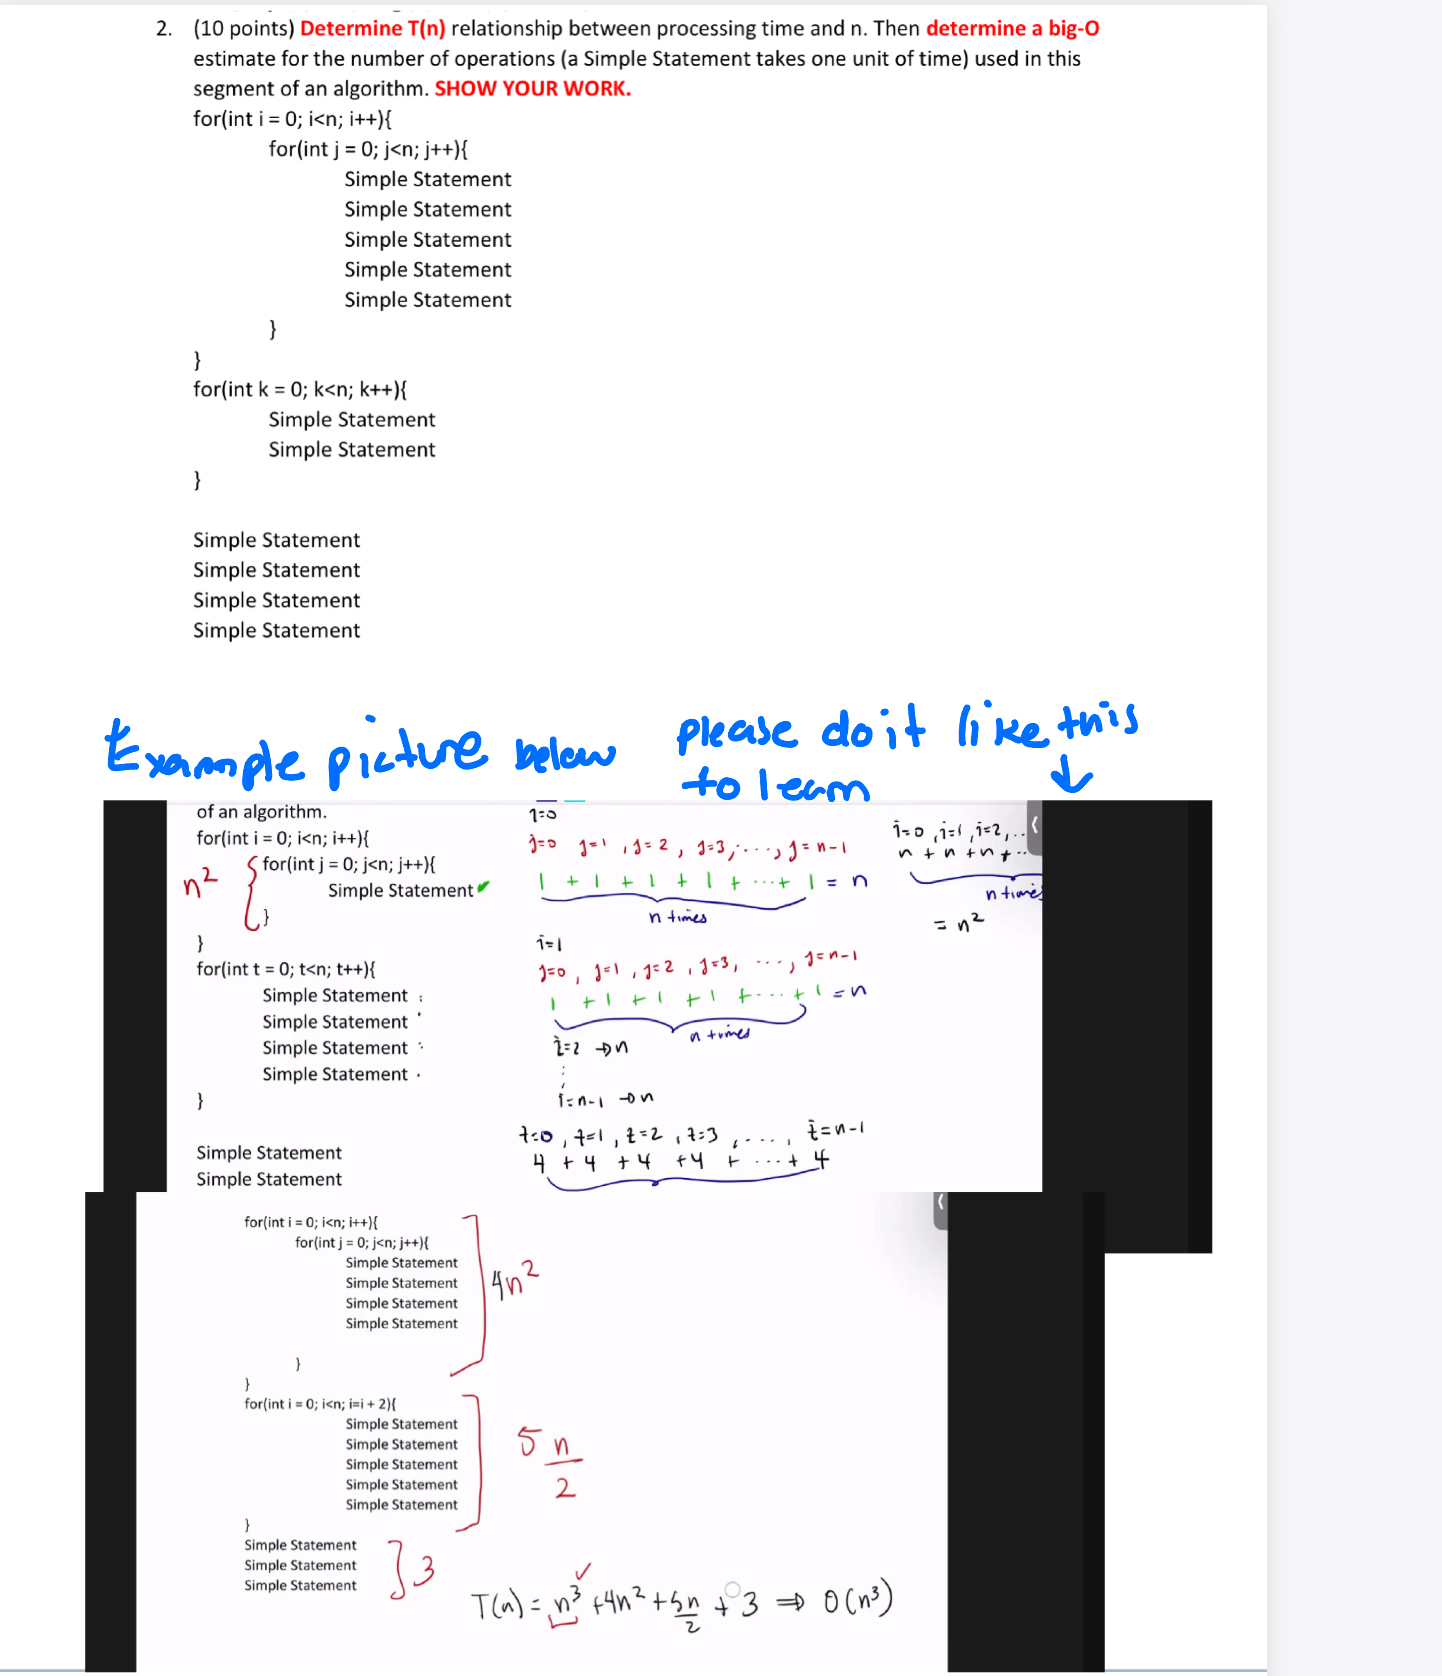 2. (10 points) Determine T(n) relationship between processing time and n. Then determine a big-O
estimate for the number of operations (a Simple Statement takes one unit of time) used in this
segment of an algorithm. SHOW YOUR WORK.
for(int i = 0; i<n; i++){
for(int j = 0; j<n; j++){
Simple Statement
Simple Statement
Simple Statement
Simple Statement
Simple Statement
}
}
for(int k = 0; k<n; k++){
Simple Statement
Simple Statement
}
Simple Statement
Simple Statement
Simple Statement
Simple Statement
Example picture below please do it like this
to learn ↓
of an algorithm.
for(int i = 0; i<n; i++){
n² { for(int j = 0; j<n; j++){
Simple Statement ✔
}
}
for(int t = 0; t<n; t++){
Simple Statement
Simple Statement
Simple Statement
Simple Statement
}
Simple Statement
Simple Statement
i=0
j=0 j=1 , j=2 , j=3, ..., j=n-1
1 + 1 + 1 + 1 + ... + 1 = n
n times
i=0 , i=1 , i=2, ..
n + n + n + ..
n times
= n²
i=1
j=0 , j=1 , j=2 , j=3, ..., j=n-1
1 + 1 + 1 + 1 + ... + 1 = n
n times
i=2 → n
⋮
i=n-1 → n
t=0 , t=1 , t=2 , t=3 , ..., t=n-1
4 + 4 + 4 + 4 + ... + 4
for(int i = 0; i<n; i++){
for(int j = 0; j<n; j++){
Simple Statement
Simple Statement
Simple Statement
Simple Statement
4n²
}
}
for(int i = 0; i<n; i=i + 2){
Simple Statement
Simple Statement
Simple Statement
Simple Statement
Simple Statement
5 n/2
}
Simple Statement
Simple Statement
Simple Statement
] 3
T(n) = n³ + 4n² + 5n/2 + 3 ⇒ O(n³)